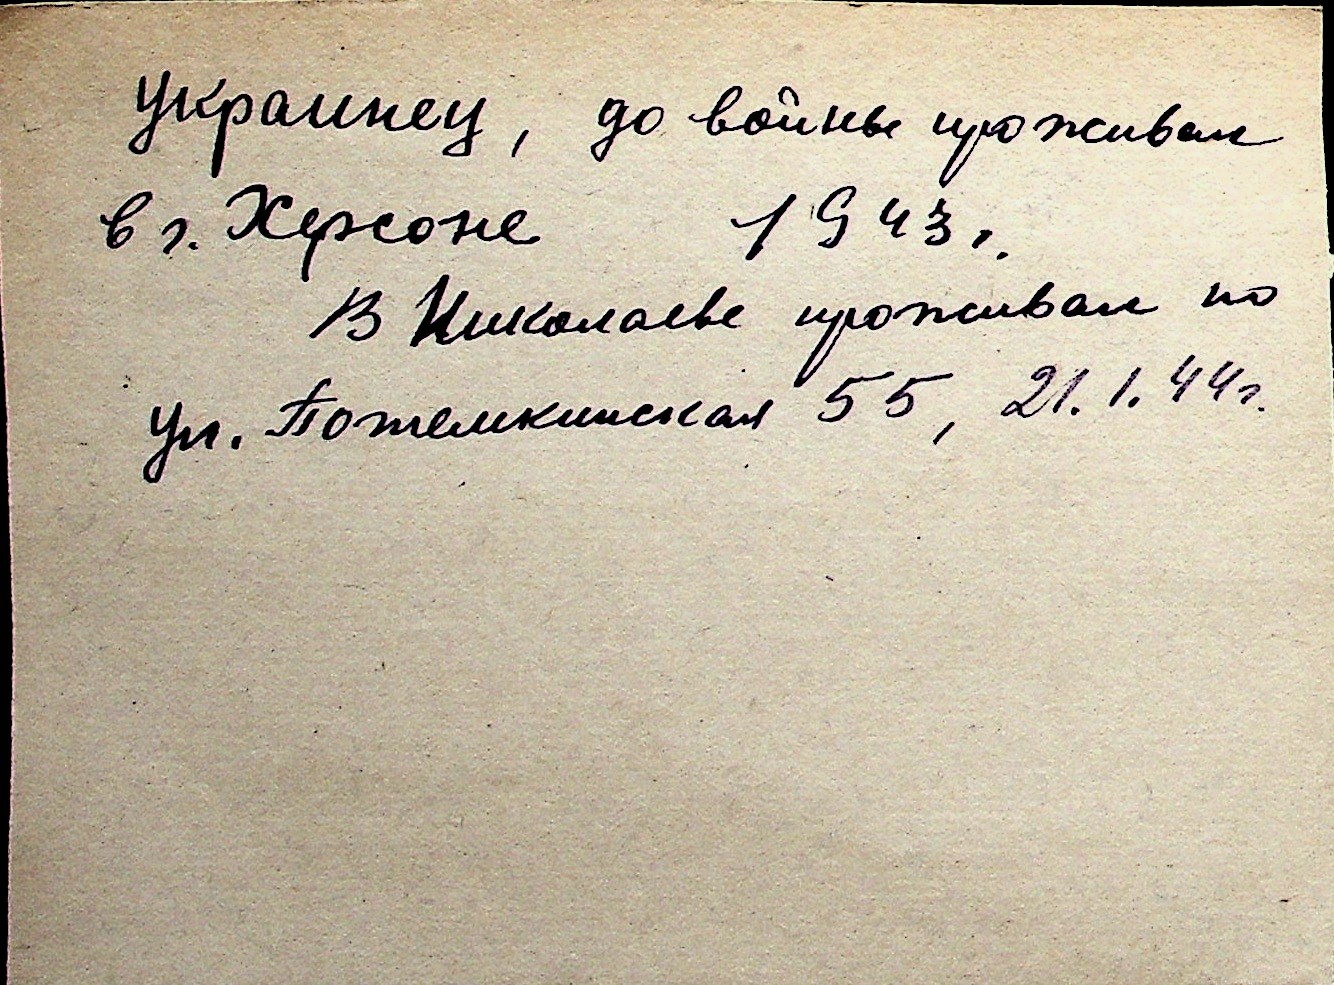 Украинец, до войны проживал
в г. Херсоне 1943г.
В Николаеве проживал по
ул. Потемкинская 55, 21.1.44г.